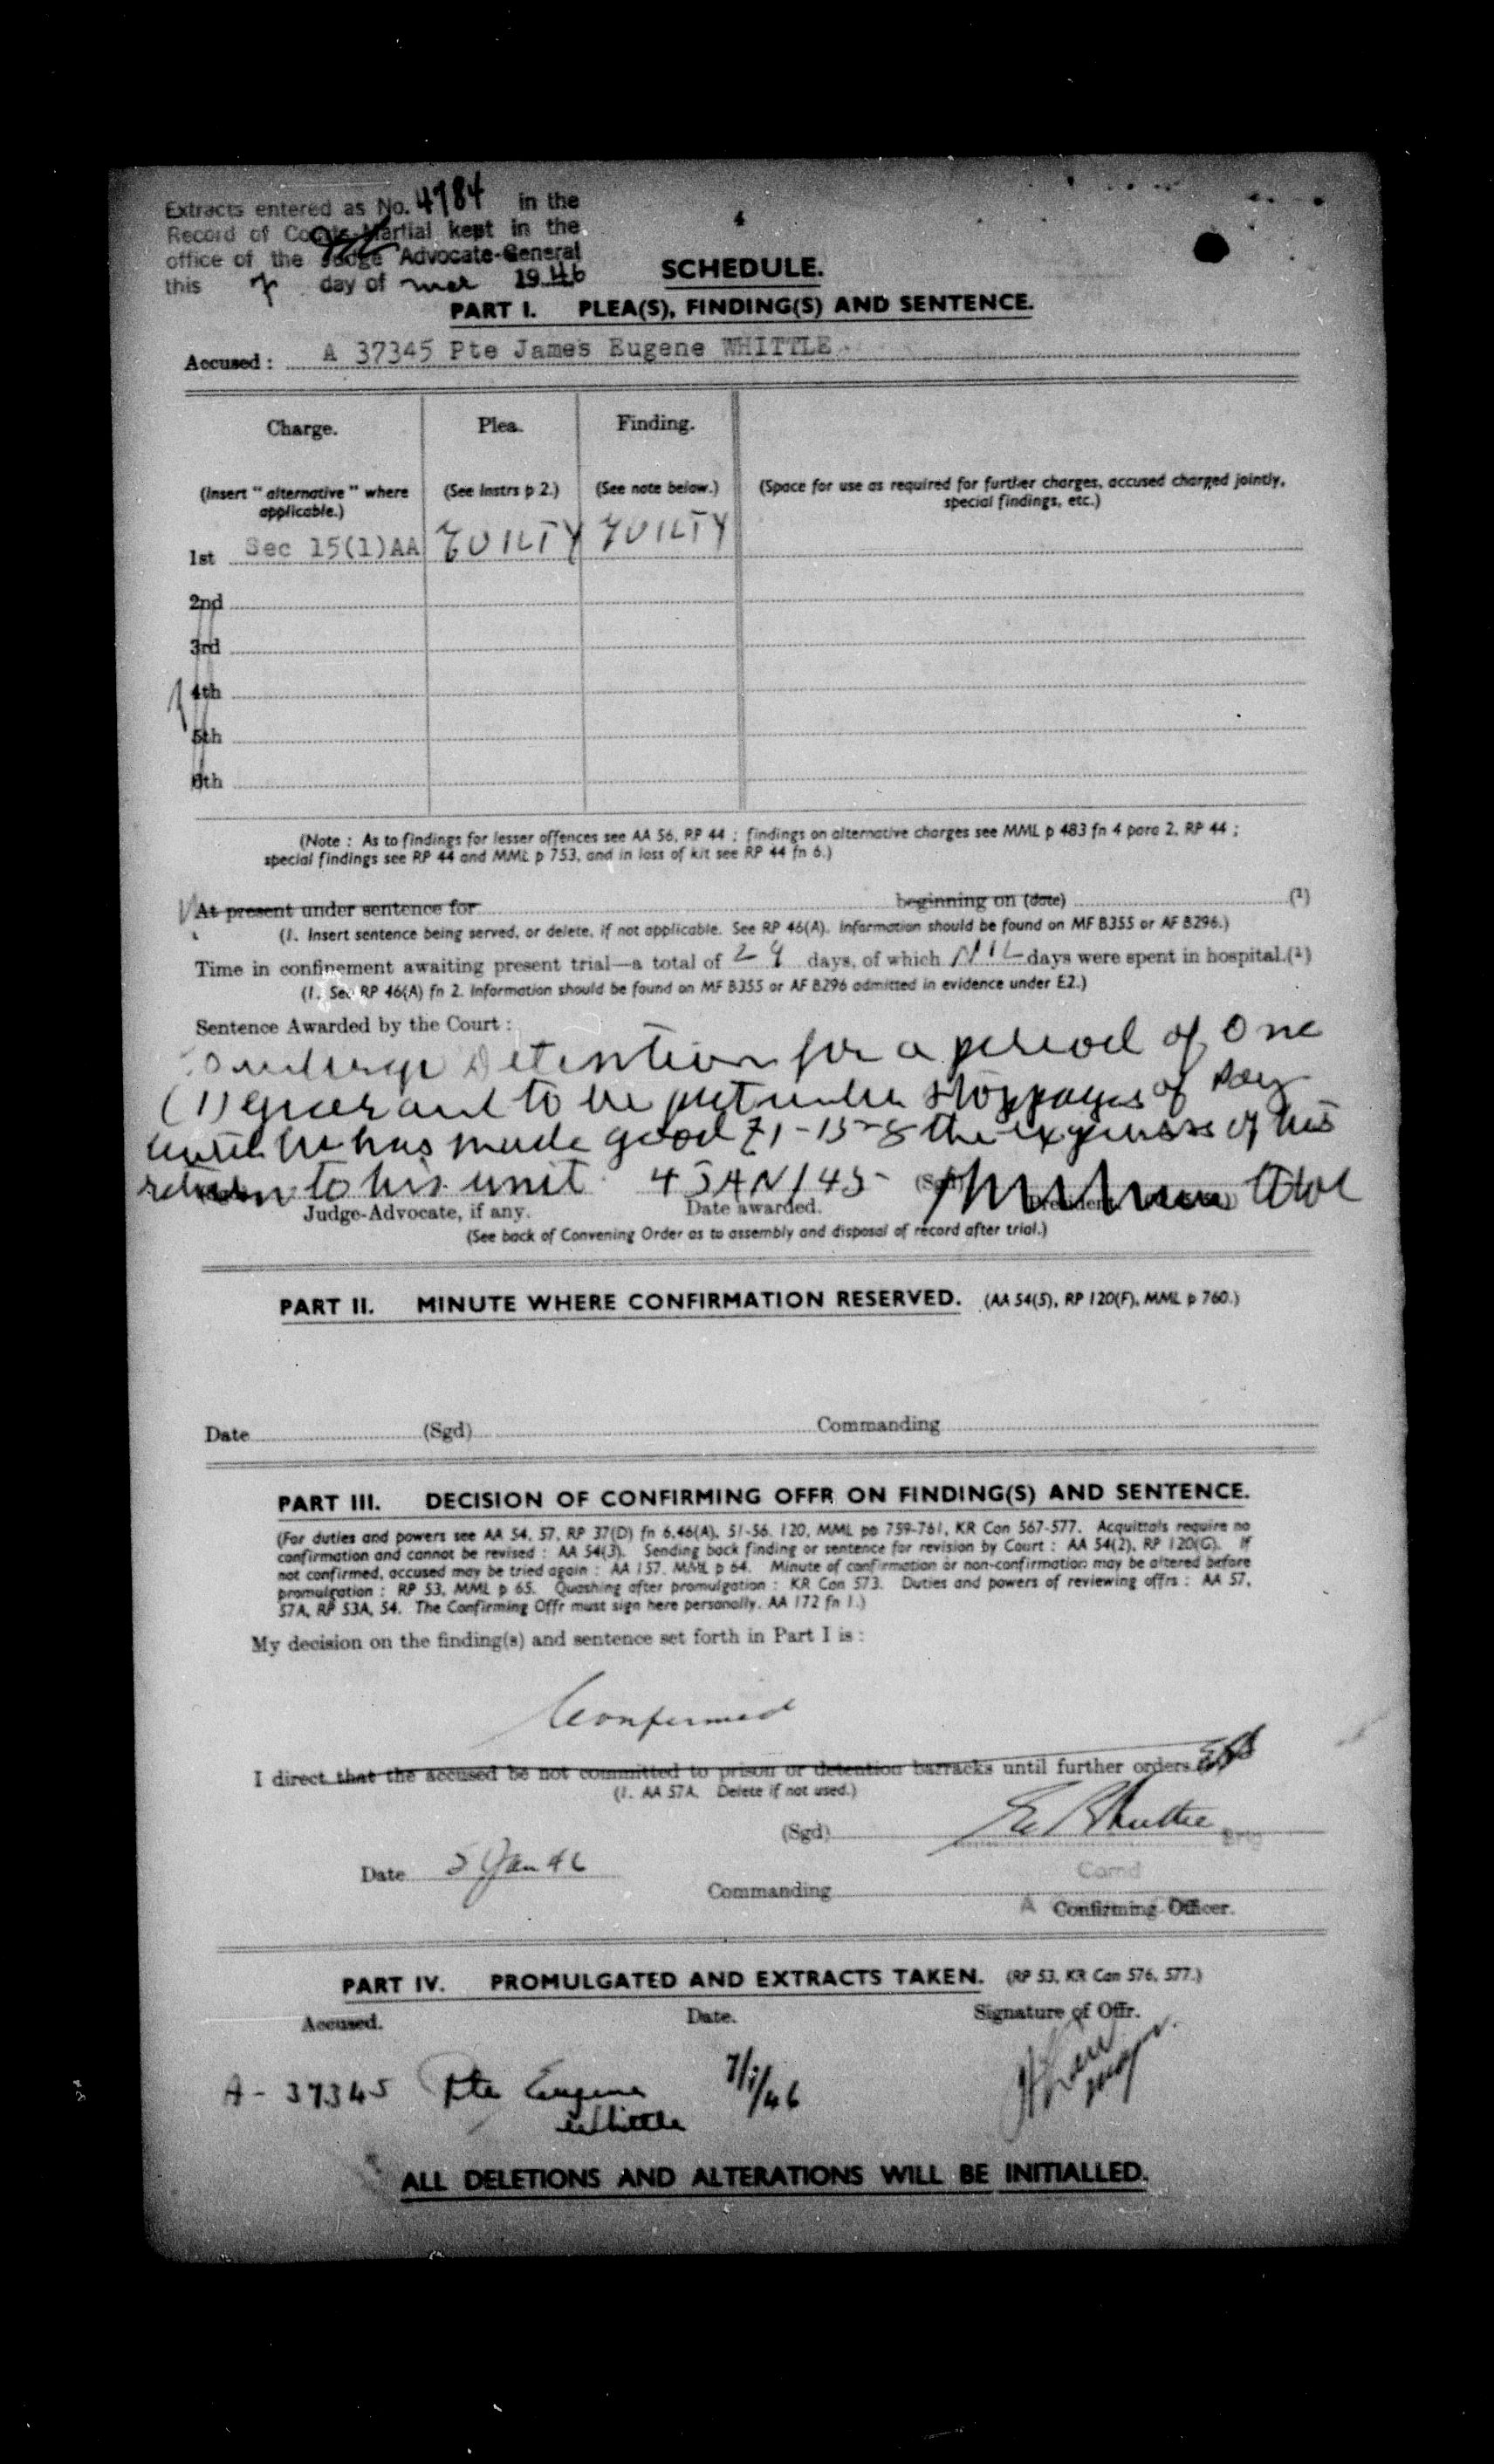 4
Extracts entered as No. 4784 in the
Record of Courts-Martial kept in the
office of the Judge Advocate-General
this 7 day of mar 1946
SCHEDULE.
PART I. PLEA(S), FINDING(S) AND SENTENCE.
Accused : A 37345 Pte James Eugene WHITTLE
Charge. Plea. Finding.
(Insert " alternative " where applicable.) (See Instrs p 2.) (See note below.) (Space for use as required for further charges, accused charged jointly,
special findings, etc.)
1st Sec 15(1)AA GUILTY GUILTY
2nd
3rd
4th
5th
6th
(Note : As to findings for lesser offences see AA 56, RP 44 ; findings on alternative charges see MML p 483 fn 4 para 2, RP 44 ;
special findings see RP 44 and MML p 753, and in loss of kit see RP 44 fn 6.)
At present under sentence for beginning on (date) (1)
(1. Insert sentence being served, or delete, if not applicable. See RP 46(A). Information should be found on MF B355 or AF B296.)
Time in confinement awaiting present trial—a total of 29 days, of which NIL days were spent in hospital.(1)
(1. See RP 46(A) fn 2. Information should be found on MF B355 or AF B296 admitted in evidence under E2.)
Sentence Awarded by the Court :
To undergo Detention for a period of One
(1) year and to be put under stoppages of pay
until he has made good £1-15-8 the expenses of his
return to his unit 4 JAN/45 (Sgd)
Judge-Advocate, if any. Date awarded. President
(See back of Convening Order as to assembly and disposal of record after trial.)
PART II. MINUTE WHERE CONFIRMATION RESERVED. (AA 54(5), RP 120(F), MML p 760.)
Date (Sgd) Commanding
PART III. DECISION OF CONFIRMING OFFR ON FINDING(S) AND SENTENCE.
(For duties and powers see AA 54, 57, RP 37(D) fn 6,46(A), 51-56, 120, MML pp 759-761, KR Can 567-577. Acquittals require no
confirmation and cannot be revised : AA 54(3). Sending back finding or sentence for revision by Court : AA 54(2), RP 120(G). If
not confirmed, accused may be tried again : AA 157, MML p 64. Minute of confirmation or non-confirmation may be altered before
promulgation : RP 53, MML p 65. Quashing after promulgation : KR Can 573. Duties and powers of reviewing offrs : AA 57,
57A, RP 53A, 54. The Confirming Offr must sign here personally. AA 172 fn 1.)
My decision on the finding(s) and sentence set forth in Part I is :
Confirmed
I direct that the accused be not committed to prison or detention barracks until further orders
(1. AA 57A. Delete if not used.)
(Sgd) Brig
Date 5 Jan 46 Comd
Commanding
A Confirming Officer.
PART IV. PROMULGATED AND EXTRACTS TAKEN. (RP 53, KR Can 576, 577.)
Accused. Date. Signature of Offr.
A - 37345 Pte Eugene 7/1/46
Whittle
ALL DELETIONS AND ALTERATIONS WILL BE INITIALLED.